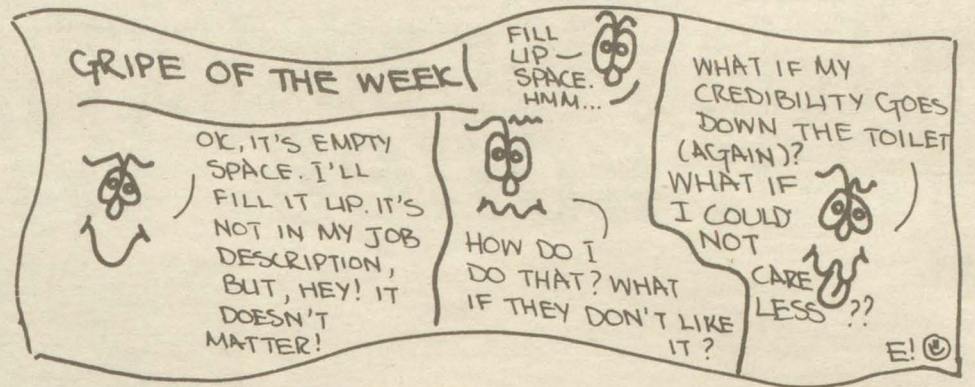 GRIPE OF THE WEEK
OK, IT'S EMPTY
SPACE. I'LL
FILL IT UP. IT'S
NOT IN MY JOB
DESCRIPTION,
BUT, HEY! IT
DOESN'T
MATTER!
FILL
UP —
SPACE.
HMM...
HOW DO I
DO THAT? WHAT
IF THEY DON'T LIKE
IT?
WHAT IF MY
CREDIBILITY GOES
DOWN THE TOILET
(AGAIN)?
WHAT IF
I COULD
NOT
CARE
LESS ??
E!